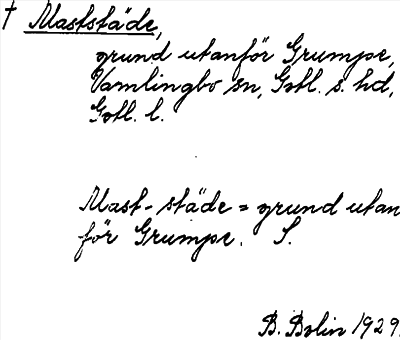 † Maststäde,
grund utanför Grumpe,
Vamlingbo sn, Gotl. s. hd,
Gotl. l.
Mast-städe = grund utan
för Grumpe. S.
B. Bolin 1929.